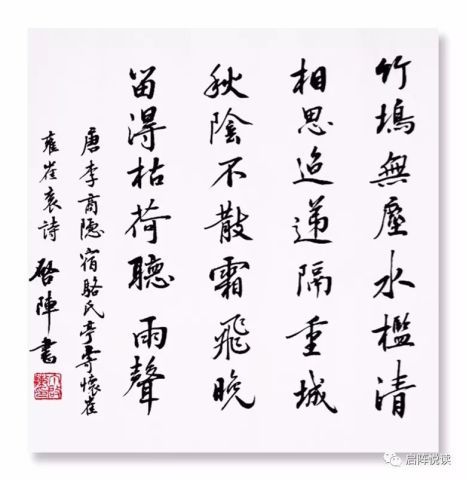 竹塢無塵水檻清
相思迢遞隔重城
秋陰不散霜飛晚
留得枯荷聽雨聲
唐李商隱宿駱氏亭寄懷崔
雍崔袞詩 啓陣書
启阵悦读